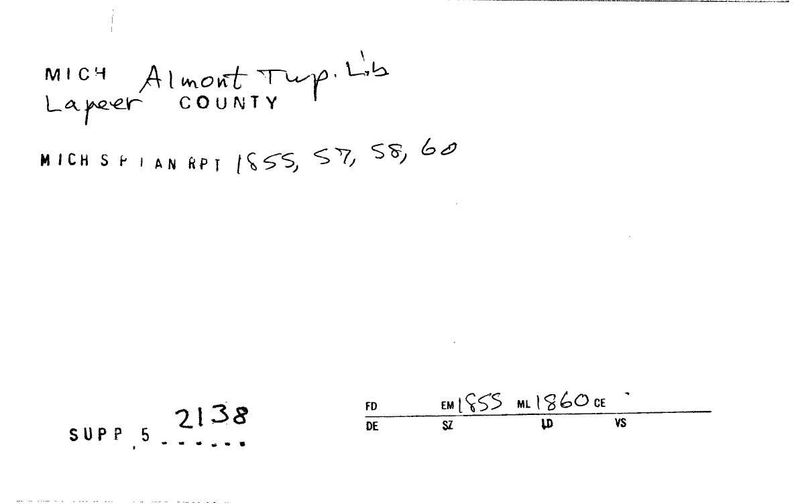 MICH Almont Twp. Lib
Lapeer COUNTY
MICH S P I AN RPT 1855, 57, 58, 60
SUPP 5 2138
FD EM 1855 ML 1860 CE
DE SZ LD VS